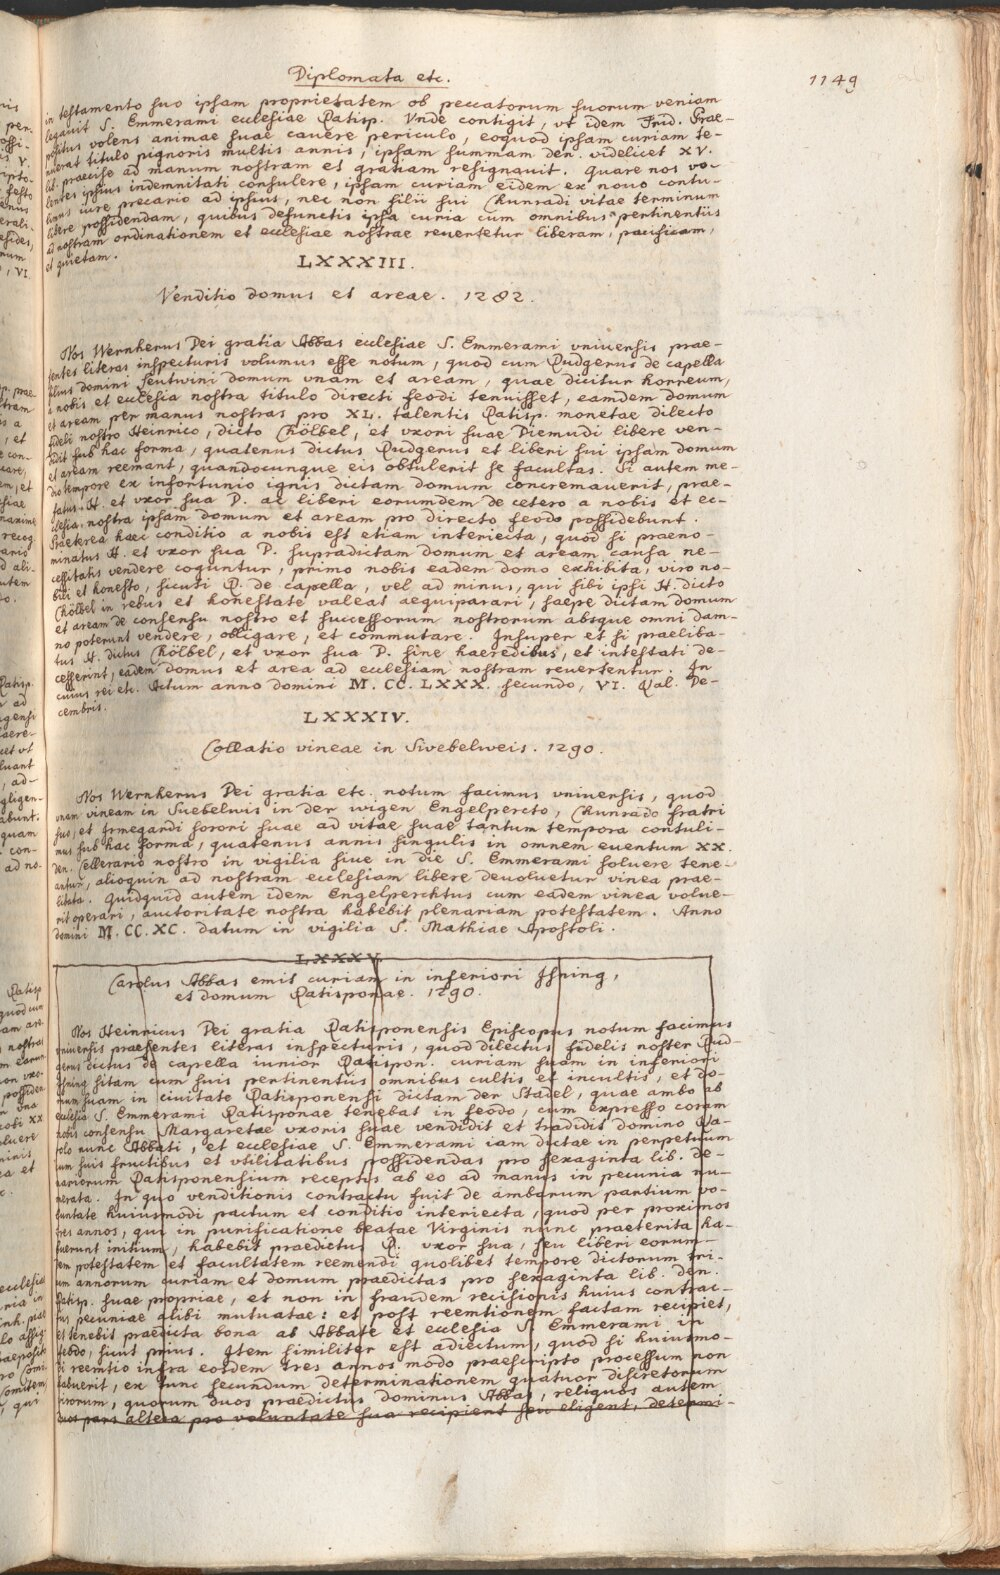 Diplomata etc.
1149
in testamento suo ipsam proprietatem ob peccatorum suorum veniam
legavit S. Emmerami ecclesiae Ratisp. Vnde contigit, vt idem Frid. Prae-
positus volens animae suae cauere periculo, eoquod ipsam curiam te-
nuerat titulo pignoris multis annis, ipsam summam den. videlicet XV.
lib. praecise ad manum nostram et gratiam resignauit. Quare nos vo-
lentes ipsius indemnitati consulere, ipsam curiam eidem ex nouo contu-
limus iure precario ad ipsius, nec non filii sui Chunradi vitae terminum
libere possidendam, quibus defunctis ipsa curia cum omnibus pertinentiis
ad nostram ordinationem et ecclesiae nostrae reuertetur liberam, pacificam,
et quietam.
LXXXIII.
Venditio domus et areae. 1282.
Nos Wernherus Dei gratia Abbas ecclesiae S. Emmerami vniuersis prae-
sentes literas inspecturis volumus esse notum, quod cum Rudgerus de capella
filius domini Leutwini domum vnam et aream, quae dicitur horreum,
a nobis et ecclesia nostra titulo directi feodi tenuisset, eamdem domum
et aream per manus nostras pro XL. talentis Ratisp. monetae dilecto
fideli nostro Heinrico, dicto Chölbel, et vxori suae Diemudi libere ven-
didit sub hac forma, quatenus dictus Rudgerus et liberi sui ipsam domum
et aream reemant, quandocunque eis obtulerit se facultas. Si autem me-
dio tempore ex infortunio ignis dictam domum concremauerit, prae-
fatus H. et vxor sua D. ac liberi eorumdem de cetero a nobis et ec-
clesia nostra ipsam domum et aream pro directo feodo possidebunt.
Praeterea haec conditio a nobis est etiam interiecta, quod si praeno-
minatus H. et vxor sua D. supradictam domum et aream causa ne-
cessitatis vendere coguntur, primo nobis eadem domo exhibita, viro no-
bili et honesto, sicuti R. de capella, vel ad minus, qui sibi ipsi H. dicto
Chölbel in rebus et honestate valeat aequiparari, saepe dictam domum
et aream de consensu nostro et successorum nostrorum absque omni dam-
no poterunt vendere, obligare, et commutare. Insuper et si praeliba-
tus H. dictus Chölbel, et vxor sua D. sine haeredibus, et intestati de-
cesserint, eadem domus et area ad ecclesiam nostram reuertentur. In
cuius rei etc. Actum anno domini M. CC. LXXX. secundo, VI. Kal. De-
cembris.
LXXXIV.
Collatio vineae in Sivebelweis. 1290.
Nos Wernherus Dei gratia etc. notum facimus vniuersis, quod
vnam vineam in Suebelwis in der wigen Engelperto, Chunrado fratri
suo, et Irmegandi sorori suae ad vitae suae tantum tempora contuli-
mus sub hac forma, quatenus annis singulis in omnem euentum XX.
den. Cellerario nostro in vigilia siue in die S. Emmerami soluere tene-
antur, alioquin ad nostram ecclesiam libere deuoluetur vinea prae-
libata. Quidquid autem idem Engelperchtus cum eadem vinea volue-
rit operari, auctoritate nostra habebit plenariam potestatem. Anno
domini M. CC. XC. datum in vigilia S. Mathiae Apostoli.
LXXXV.
Carolus Abbas emit curiam in inferiori Ihning,
et domum Ratisponae. 1290.
Nos Heinricus Dei gratia Ratisponensis Episcopus notum facimus
vniuersis praesentes literas inspecturis, quod dilectus fidelis noster Rud-
gerus dictus de capella iunior Ratispon. curiam suam in inferiori
Ihning sitam cum suis pertinentiis omnibus cultis et incultis, et do-
mum suam in ciuitate Ratisponensi dictam der Stadel, quae ambo ab
ecclesia S. Emmerami Ratisponae tenebat in feodo, cum expresso coram
nobis consensu Margaretae vxoris suae vendidit et tradidit domino Ka-
rolo nunc Abbati, et ecclesiae S. Emmerami iam dictae in perpetuum
cum suis fructibus et vtilitatibus possidendas pro sexaginta lib. de-
nariorum Ratisponensium receptis ab eo ad manus in pecunia nu-
merata. In quo venditionis contractu fuit de ambarum partium vo-
luntate huiusmodi pactum et conditio interiecta, quod per proximos
tres annos, qui in purificatione beatae Virginis nunc praeterita ha-
buerunt initium, habebit praedictus R. vxor sua, seu liberi eorum-
dem potestatem et facultatem reemendi quolibet tempore dictorum tri-
um annorum curiam et domum praedictas pro sexaginta lib. den.
Ratisp. suae propriae, et non in fraudem recisionis huius contrac-
tus pecuniae alibi mutuatae: et post reemtionem factam recipiet,
et tenebit praedicta bona ab Abbate et ecclesia S. Emmerami in
feodo, sicut prius. Item similiter est adiectum, quod si huiusmo-
di reemtio infra eosdem tres annos modo praescripto processum non
habuerit, ex tunc secundum determinationem quatuor discretorum
virorum, quorum duos praedictus dominus Abbas, reliquos autem
duos pars altera pro voluntate sua recipient seu eligent, determi-